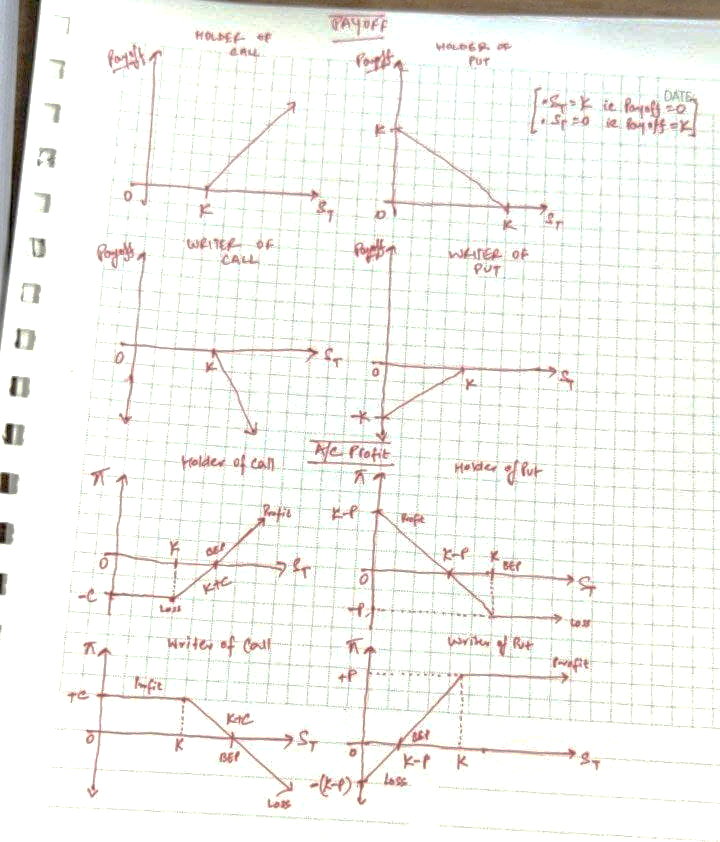 PAYOFF
HOLDER OF
CALL
Payoff
0
K
ST
HOLDER OF
PUT
Payoff
K
0
K
ST
DATE:
[• ST = K ie Payoff = 0]
[• ST = 0 ie Payoff = K]
WRITER OF
CALL
Payoff
0
K
ST
WRITER OF
PUT
Payoff
0
K
ST
-K
A/C Profit
Holder of Call
π
Profit
K
BEP
0
ST
K+C
-C
Loss
Holder of Put
π
K-P
Profit
K-P
K
BEP
0
ST
-P
Loss
Writer of Call
π
+C
Profit
K+C
0
K
BEP
ST
Loss
Writer of Put
π
+P
Profit
BEP
0
K-P
K
ST
-(K-P)
Loss